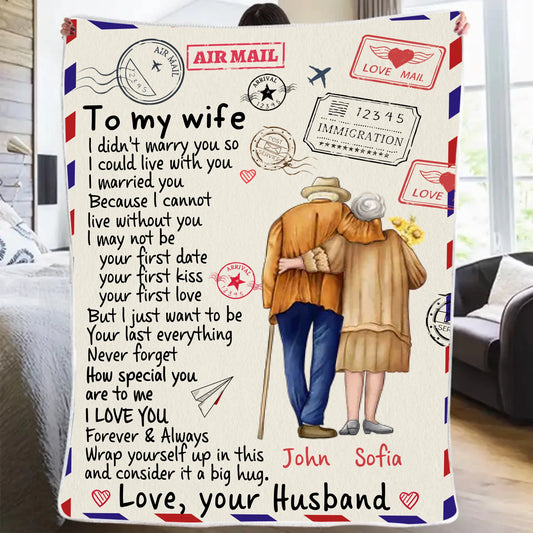 AIR MAIL
12345
AIR MAIL
ARRIVAL
12345
LOVE MAIL
12345
IMMIGRATION
LOVE
To my wife
I didn't marry you so
I could live with you
I married you
Because I cannot
live without you
I may not be
your first date
your first kiss
your first love
But I just want to be
Your last everything
Never forget
How special you
are to me
I LOVE YOU
Forever & Always
Wrap yourself up in this
and consider it a big hug.
ARRIVAL
12345
John Sofia
Love, your Husband